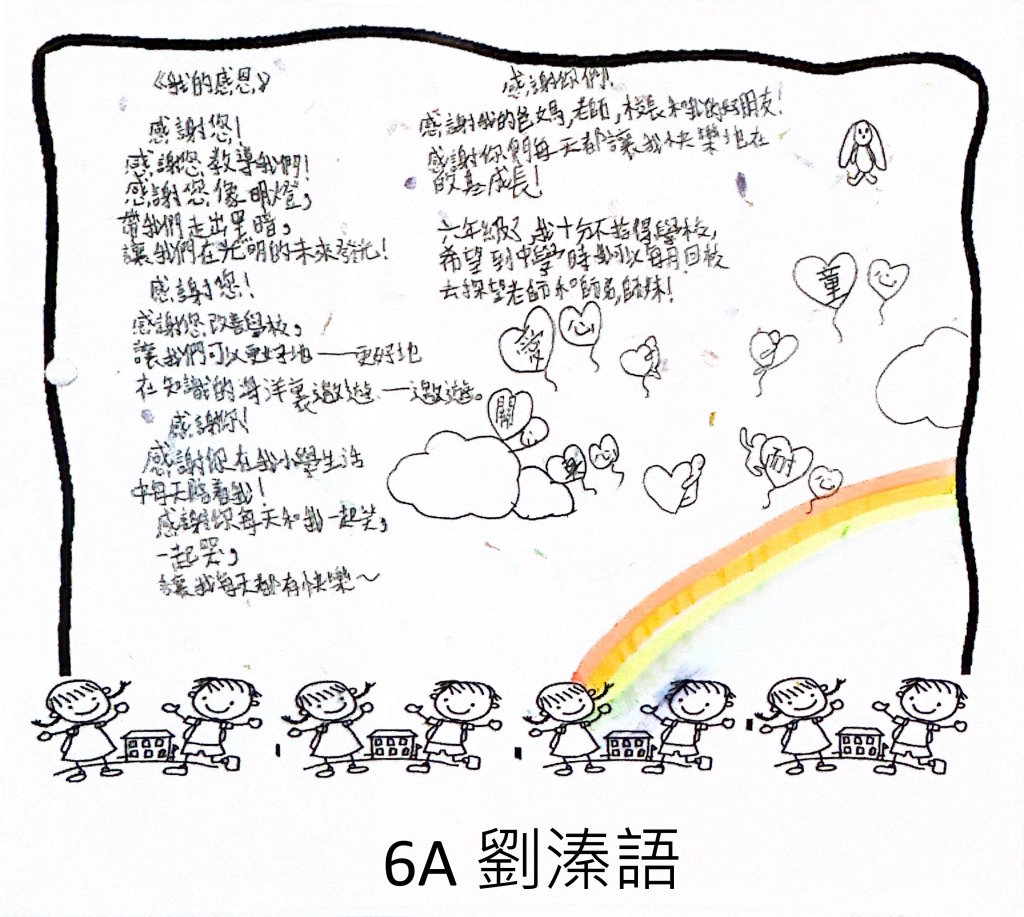 《我的感恩》
感謝您！
感謝您教導我們！
感謝您像明燈，
帶我們走出黑暗，
讓我們在光明的未來發光！
感謝您！
感謝您改善學校，
讓我們可以更好地——更好地
在知識的海洋裏遨遊——遨遊。
感謝你！
感謝你在我小學生活
中每天陪着我！
感謝你每天和我一起笑，
一起哭，
讓我每天都有快樂～
感謝你們！
感謝我的爸媽，老師，校長和我的好朋友！
感謝你們每天都讓我快樂地在
成長！
六年級了，我十分不捨得學校，
希望到中學時我可以每月回校
去探望老師和師弟，師妹！
童
心
愛
心
關
心
耐
心
6A 劉溱語